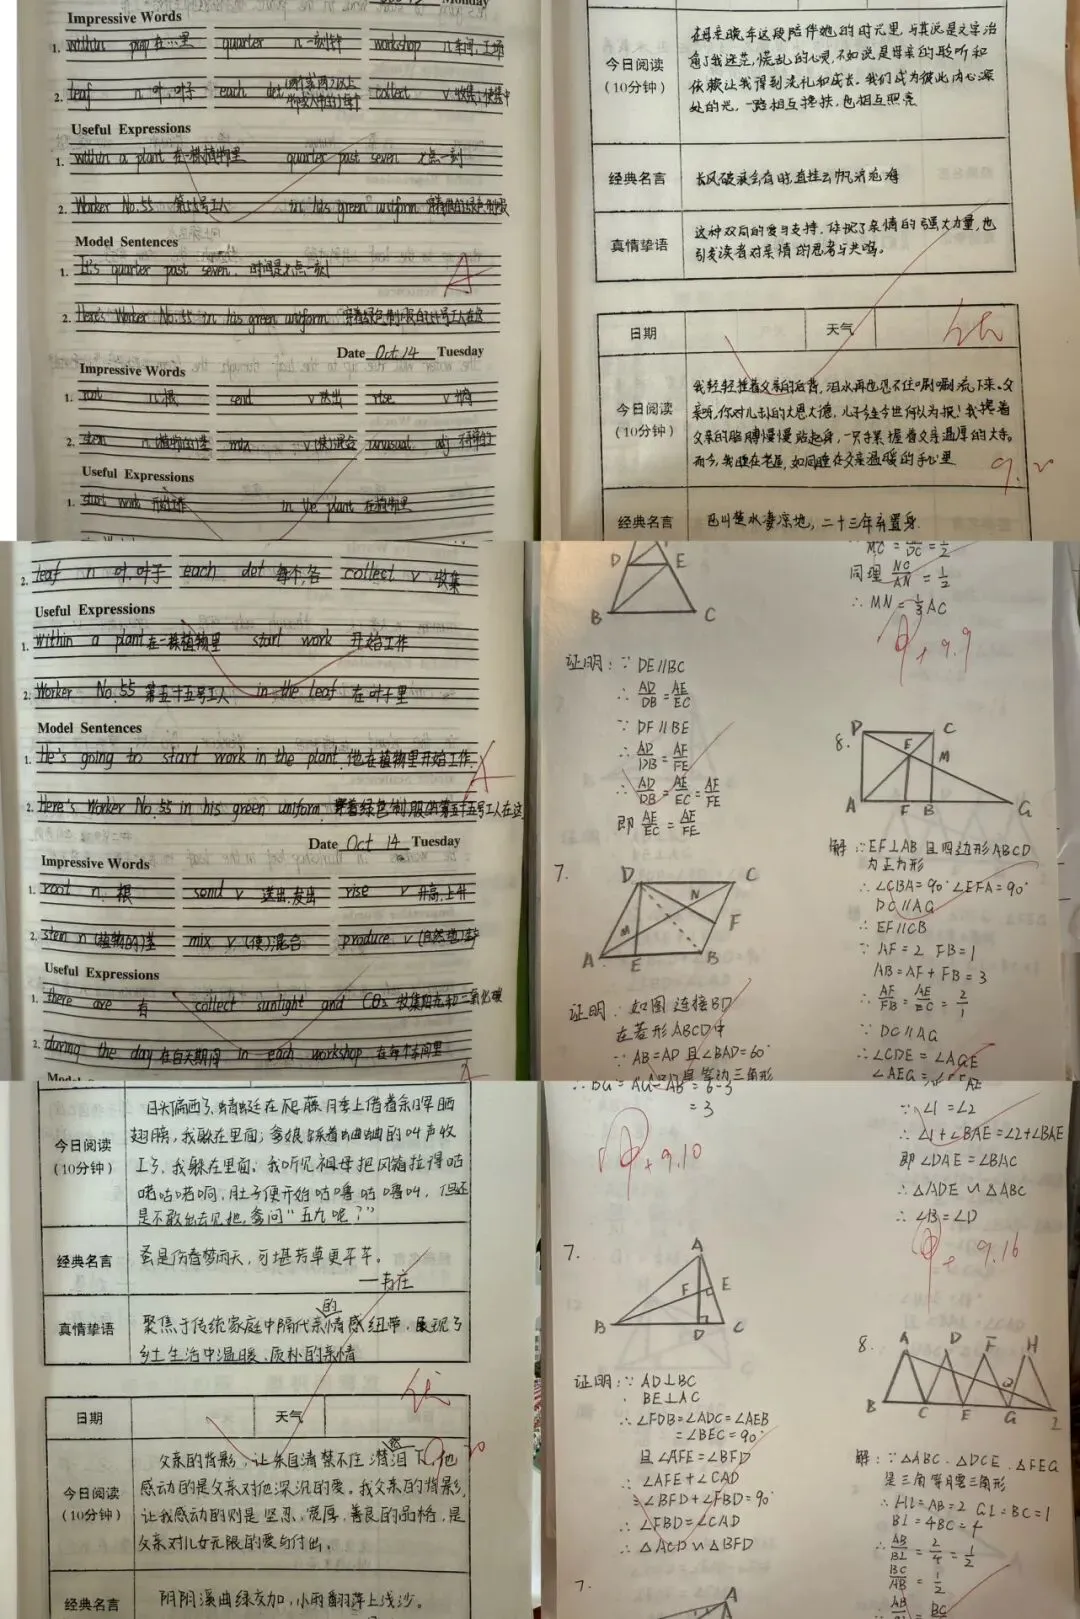 Monday
Impressive Words
1. within prep 在…里 quarter n 一刻钟 workshop n 车间,工场
2. leaf n 叶,叶子 each det collect v 收集
Useful Expressions
1. within a plant 在一株植物里 quarter past seven 七点一刻
2. Worker No.55 第55号工人 in his green uniform
Model Sentences
1. It's quarter past seven. 时间是七点一刻
A
2. Here's Worker No.55 in his green uniform
Date Oct 14 Tuesday
Impressive Words
1. root n 根 send v 送出 rise v
2. stem n (植物的)茎 mix v (使)混合 unusual adj
Useful Expressions
1. start work 开始工作 in the plant 在植物里
今日阅读
(10分钟)
在母亲晚年这段陪伴她的时光里,与其说是文字治
愈了我迷茫,慌乱的心灵,不如说是母亲的聆听和
依赖让我得到洗礼和成长。我们成为彼此内心深
处的光,一路相互搀扶,也相互照亮
经典名言
长风破浪会有时,直挂云帆济沧海
真情挚语
这种双向的爱与支持,体现了亲情的强大力量,也
引发读者对亲情的思考与共鸣。
日期 天气
优
今日阅读
(10分钟)
我轻轻挂着父亲的后背,泪水再也忍不住唰唰流下来。父
亲呀,你对儿子的大恩大德,儿子今生今世何以为报!我搀着
父亲的胳膊慢慢站起身,一只手紧握着父亲温厚的大手。
而今,我睡在老屋,如同睡在父亲温暖的手心里
经典名言
巴山楚水凄凉地,二十三年弃置身.
2. leaf n 叶,叶子 each det 每个,各 collect v 收集
Useful Expressions
1. within a plant 在一株植物里 start work 开始工作
2. Worker No.55 第五十五号工人 in the leaf 在叶子里
Model Sentences
1. He's going to start work in the plant. 他在植物里开始工作.
A
2. Here's Worker No.55 in his green uniform. 穿着绿色制服的第五十五号工人在这
Date Oct 14 Tuesday
Impressive Words
1. root n. 根 send v 送出,发出 rise v 升高,上升
2. stem n (植物的)茎 mix v (使)混合 produce v
Useful Expressions
1. there are 有 collect sunlight and CO₂ 收集阳光和二氧化碳
2. during the day 在白天期间 in each workshop 在每个车间里
D E
B C
证明:∵ DE∥BC
∴ AD/DB = AE/EC
∵ DF∥BE
∴ AD/DB = AF/FE
∴ AD/DB = AE/EC = AF/FE
即 AE/EC = AF/FE
7.
D C N F M A E B
证明:如图 连接BD
在菱形ABCD中
∵ AB=AD 且∠BAD=60°
MC = DC = 1/2
同理 NC/AN = 1/2
∴ MN = 1/3 AC
9.9
8.
D C E M A F B G
解:∵EF⊥AB 且四边形ABCD
为正方形
∴ ∠CBA=90° ∠EFA=90°
DC∥AG
∴ EF∥CB
∵ AF=2 FB=1
AB=AF+FB=3
∴ AF/FB = AE/EC = 2/1
∵ DC∥AG
∴ ∠CDE = ∠AGE
今日阅读
(10分钟)
日头偏西了,蜻蜓在爬藤月季上借着余晖晒
翅膀,我躲在里面;爹娘踩着蛐蛐的叫声收
工了,我躲在里面。我听见祖母把风箱拉得咕
喏咕喏响,肚子便开始咕噜咕噜叫,但还
是不敢出去见他,爹问“五九呢?”
经典名言
——韦庄
真情挚语
聚焦于传统家庭中隔代亲情的情感纽带,展现了
乡土生活中温暖、质朴的亲情
日期 天气
优
今日阅读
(10分钟)
父亲的背影,让朱自清禁不住潸然泪下,他
感动的是父亲对他深沉的爱。我父亲的背影,
让我感动的则是坚忍,宽厚,善良的品格,是
父亲对儿女无限的爱与付出。
经典名言
阴阴溪曲绿交加,小雨翻萍上浅沙。
∴ BG = AG-AB = 6-3
=3
9.10
7.
A F E B D C
证明:∵ AD⊥BC
BE⊥AC
∴ ∠FDB=∠ADC=∠AEB
=∠BEC=90°
且∠AFE=∠BFD
∴ ∠AFE+∠CAD
=∠BFD+∠FBD=90°
∴ ∠FBD=∠CAD
∴ △ACD∽△BFD
7.
A
∵ ∠1=∠2
∴ ∠1+∠BAE=∠2+∠BAE
即∠DAE=∠BAC
∴ △ADE∽△ABC
∴ ∠B=∠D
9.16
8.
A D F H
B C E G I
解:∵△ABC、△DCE、△FEG
是三角等腰三角形
∴ HI=AB=2 GI=BC=1
BI=4BC=4
∴ AB/BI = 2/4 = 1/2
BC/AB = 1/2